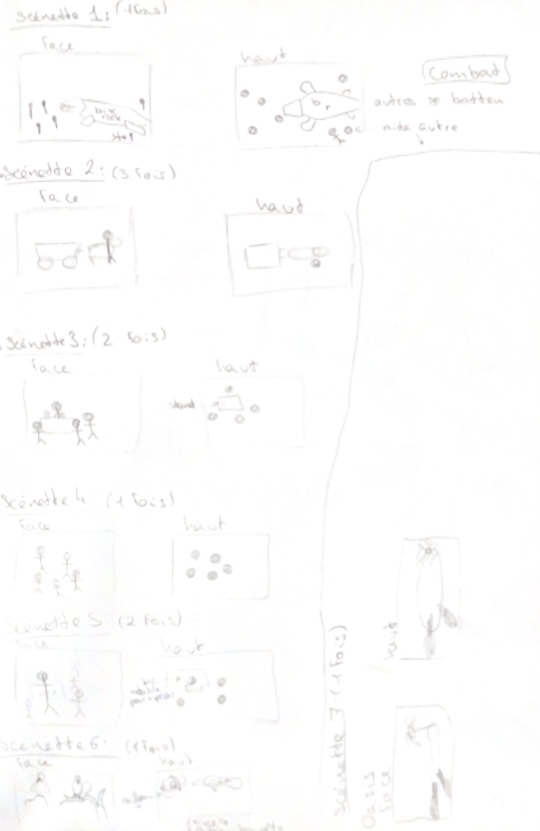 Scénette 1: (1 fois)
face
haut
Combat
autres se battent
aide autre
Scénette 2: (3 fois)
face
haut
Scénette 3: (2 fois)
face
haut
stand
Scénette 4 (1 fois)
face
haut
Scénette 5: (2 fois)
haut
table
Scénette 6: (1 fois)
face
haut
Scénette 7 (1 fois)
haut
Oasis
face